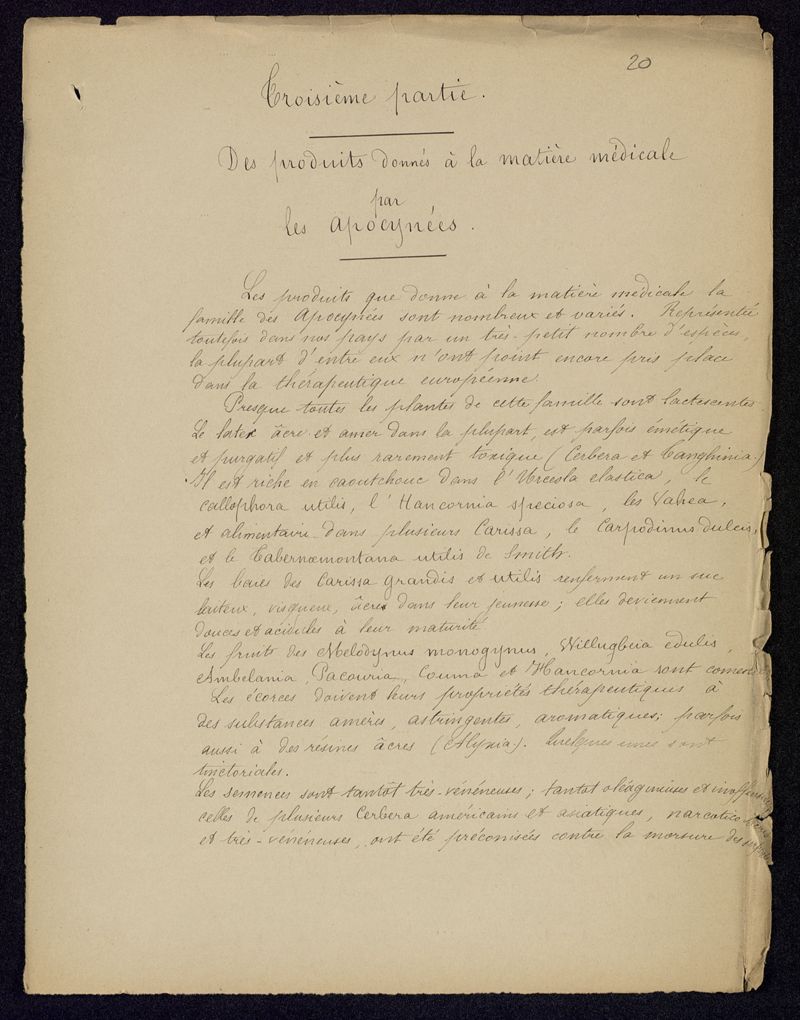 20
Troisième partie.
Des produits donnés à la matière médicale
par
les Apocynées.
Les produits que donne à la matière médicale la
famille des Apocynées sont nombreux et variés. Représentée
toutefois dans nos pays par un très-petit nombre d'espèces,
la plupart d'entre eux n'ont point encore pris place
dans la thérapeutique européenne.
Presque toutes les plantes de cette famille sont lactescentes.
Le latex âcre et amer dans la plupart, est parfois émétique
et purgatif et plus rarement toxique (Cerbera et Tanghinia.)
Il est riche en caoutchouc dans l'Urceola elastica, le
Callophora utilis, l'Hancornia speciosa, les Vahea,
et alimentaire dans plusieurs Carissa, le Carpodinus dulcis,
et le Tabernœmontana utilis de Smith.
Les baies des Carissa grandis et utilis renferment un suc
laiteux, visqueux, âcre dans leur jeunesse; elles deviennent
douces et acidules à leur maturité.
Les fruits des Melodynus monogynus, Willugbeia edulis,
Ambelania, Pacouria, Couma et Hancornia sont
Les écorces doivent leurs propriétés thérapeutiques à
des substances amères, astringentes, aromatiques; parfois
aussi à des résines âcres (Alyxia). Quelques unes sont
tinctoriales.
Les semences sont tantôt très-vénéneuses; tantôt oléagineuses et
celles de plusieurs Cerbera américains et asiatiques,
et très-vénéneuses, ont été préconisées contre la morsure des